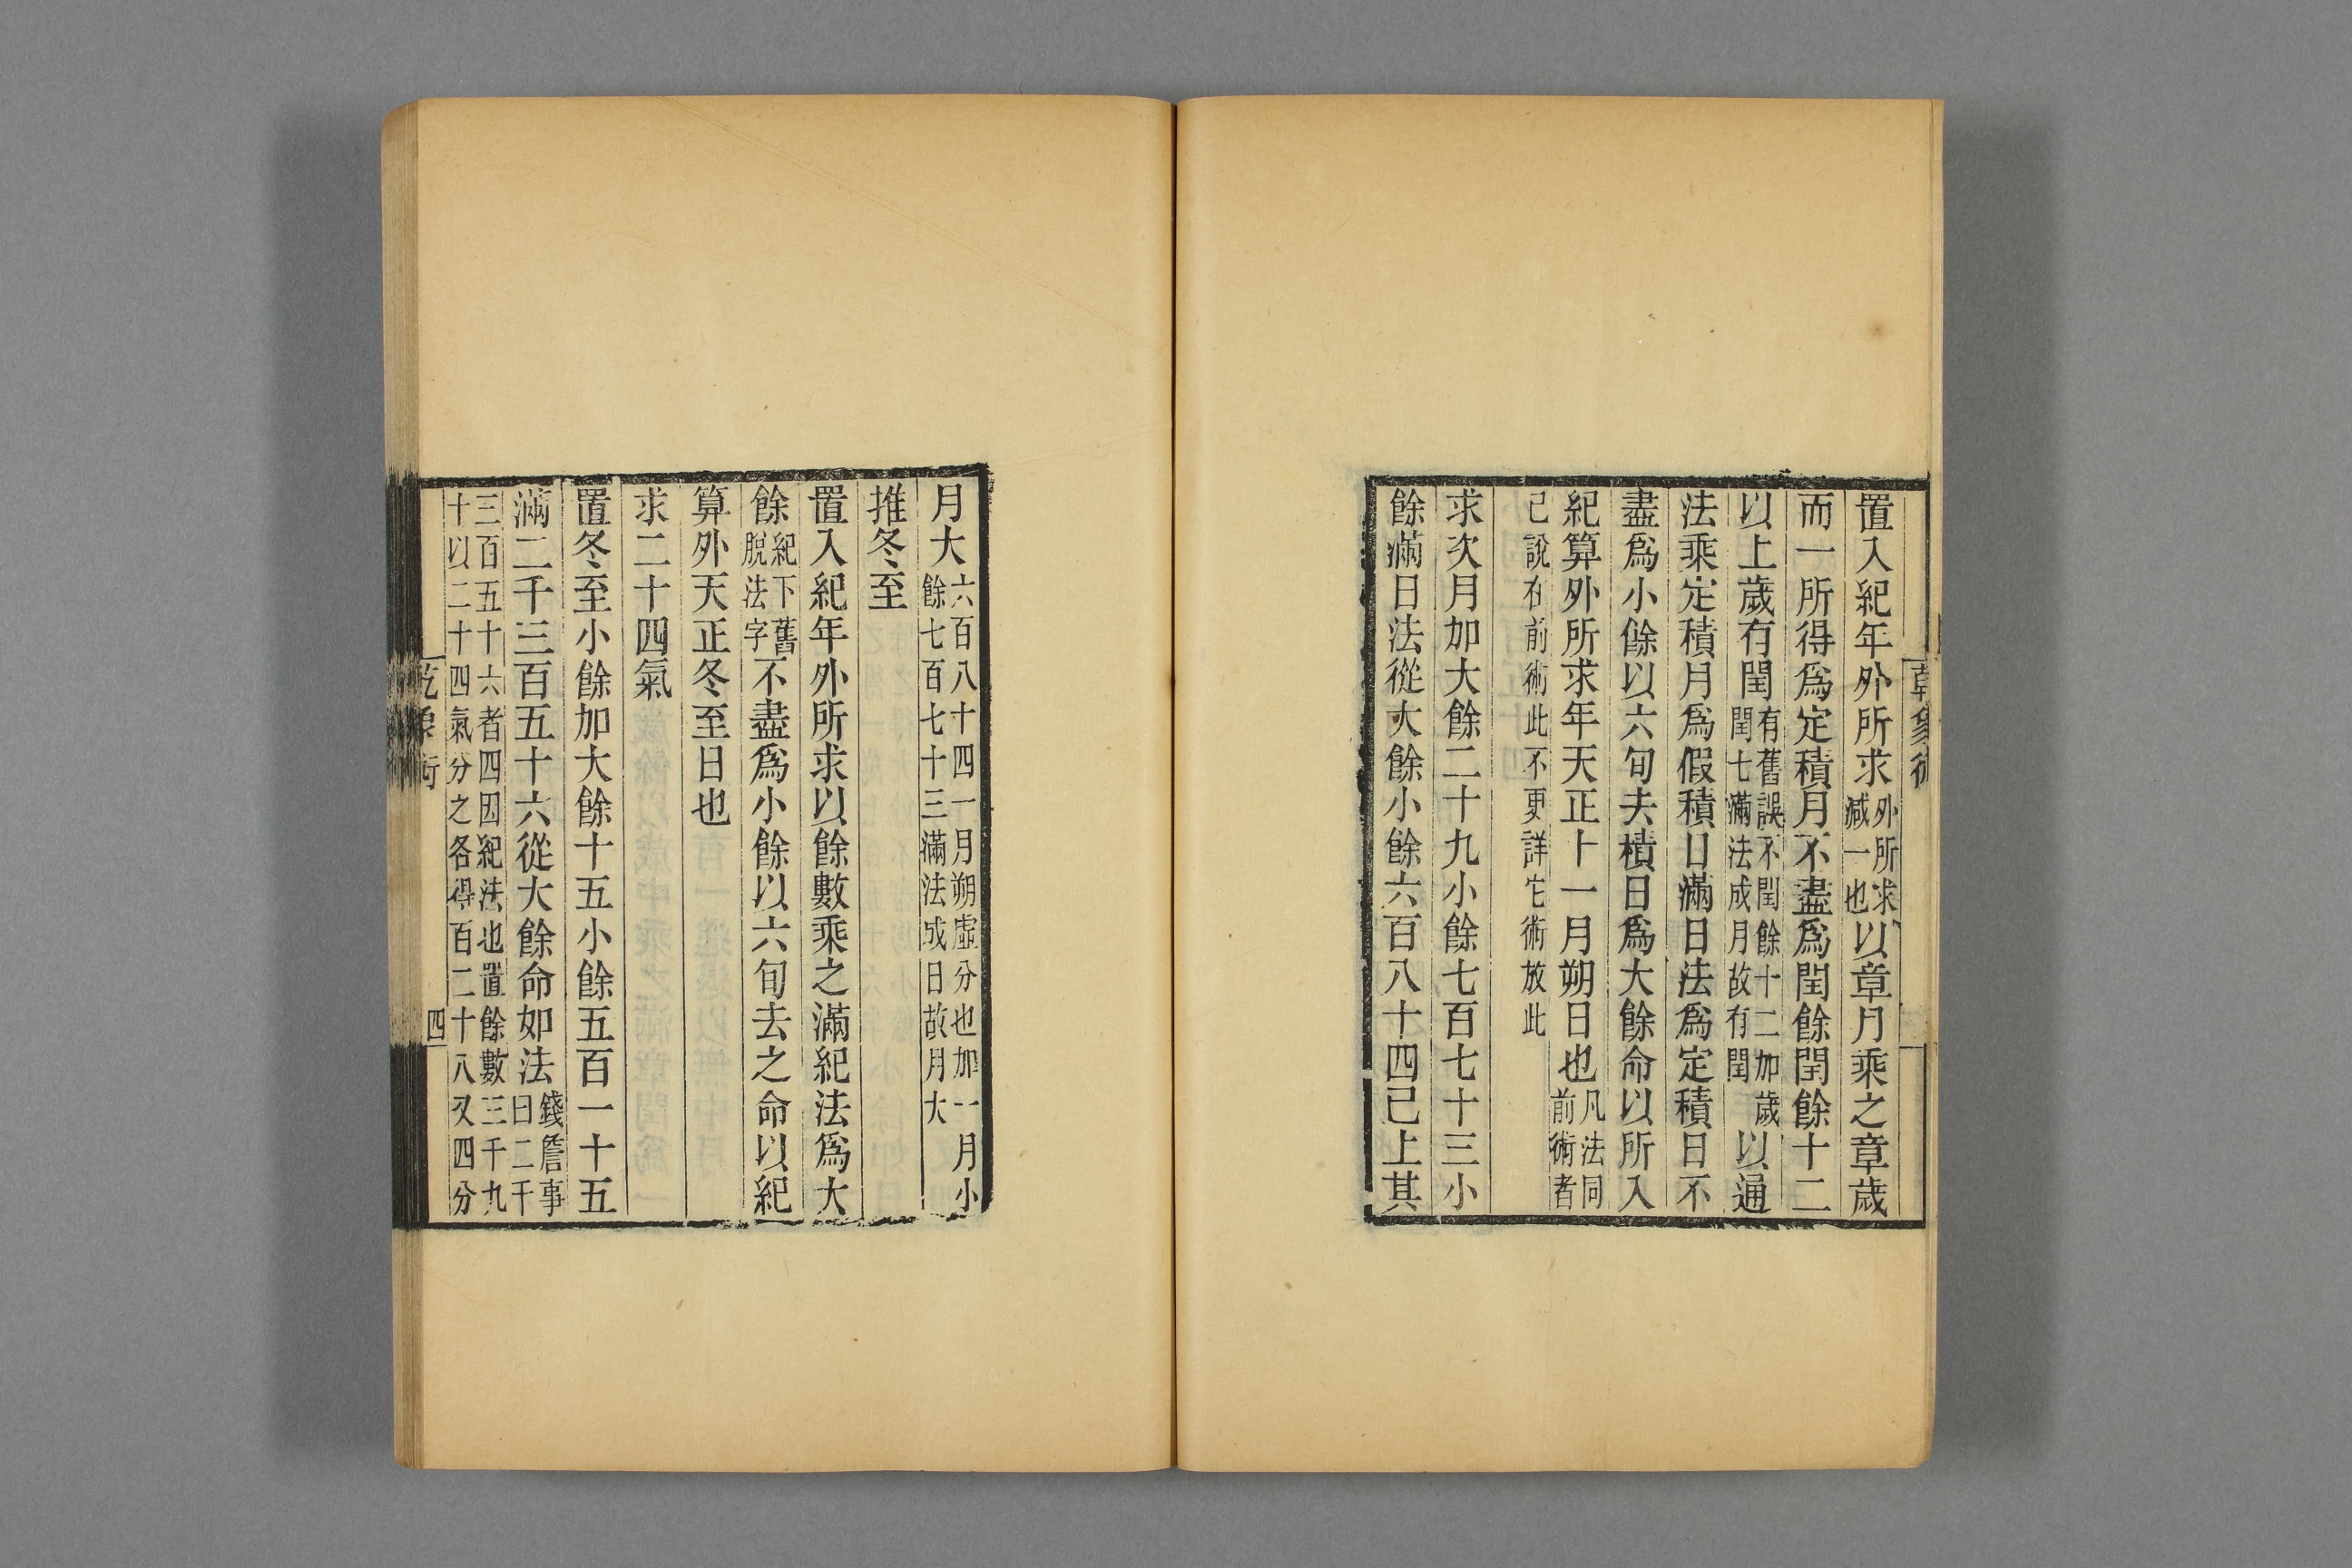 乾象術
置入紀年外所求外所求減一也以章月乘之章歲
而一所得爲定積月不盡爲閏餘閏餘十二
以上歲有閏有舊誤不閏餘十二加歲閏七滿法成月故有閏以通
法乘定積月爲假積日滿日法爲定積日不
盡爲小餘以六旬去積日爲大餘命以所入
紀算外所求年天正十一月朔日也凡法同前術者
已說在前術此不更詳它術放此
求次月加大餘二十九小餘七百七十三小
餘滿日法從大餘小餘六百八十四已上其
月大六百八十四一月朔虛分也加一月小餘七百七十三滿法成日故月大
推冬至
置入紀年外所求以餘數乘之滿紀法爲大
餘紀下舊脫法字不盡爲小餘以六旬去之命以紀
算外天正冬至日也
求二十四氣
置冬至小餘加大餘十五小餘五百一十五
滿二千三百五十六從大餘命如法錢詹事曰二千
三百五十六者四因紀法也置餘數三千九
十以二十四氣分之各得百二十八又四分
乾象術
四